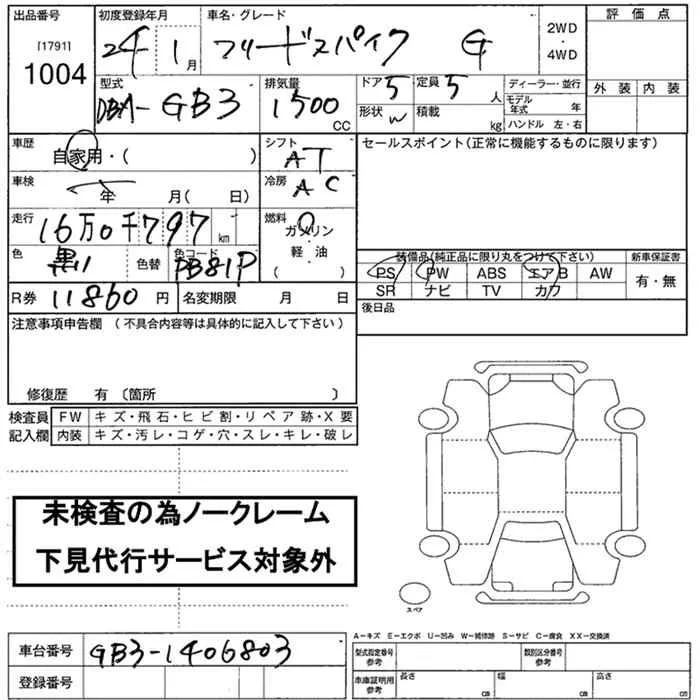 出品番号 初度登録年月 車名・グレード 評価点
[1791]
1004 24年 1月 フリードスパイク G 2WD・4WD
型式 排気量 ドア 5 定員 5人 ディーラー・並行 外装 内装
DBA-GB3 1500CC 形状 W 積載 kg モデル年式 年
ハンドル 左・右
車歴 自家用・( ) シフト AT セールスポイント(正常に機能するものに限ります)
車検 年 月( 日) 冷房 AC
走行 16万0千797km 燃料 ガソリン・軽油・( )
色 黒 色替 色コード PB81P
装備品(純正品に限り丸をつけて下さい) 新車保証書
PS PW ABS エアB AW 有・無
SR ナビ TV カワ
R券 11860円 名変期限 月 日
後日品
注意事項申告欄(不具合内容等は具体的に記入して下さい)
修復歴 有 〔箇所 〕
検査員記入欄 FW キズ・飛石・ヒビ割・リペア跡・X要
内装 キズ・汚レ・コゲ・穴・スレ・キレ・破レ
未検査の為ノークレーム
下見代行サービス対象外
スペア
A-キズ E-エクボ U-凹み W-補修跡 S-サビ C-腐食 XX-交換済
車台番号 GB3-1406803 型式指定番号 参考 類別区分番号 参考
登録番号 車庫証明用 参考 長さ cm 幅 cm 高さ cm